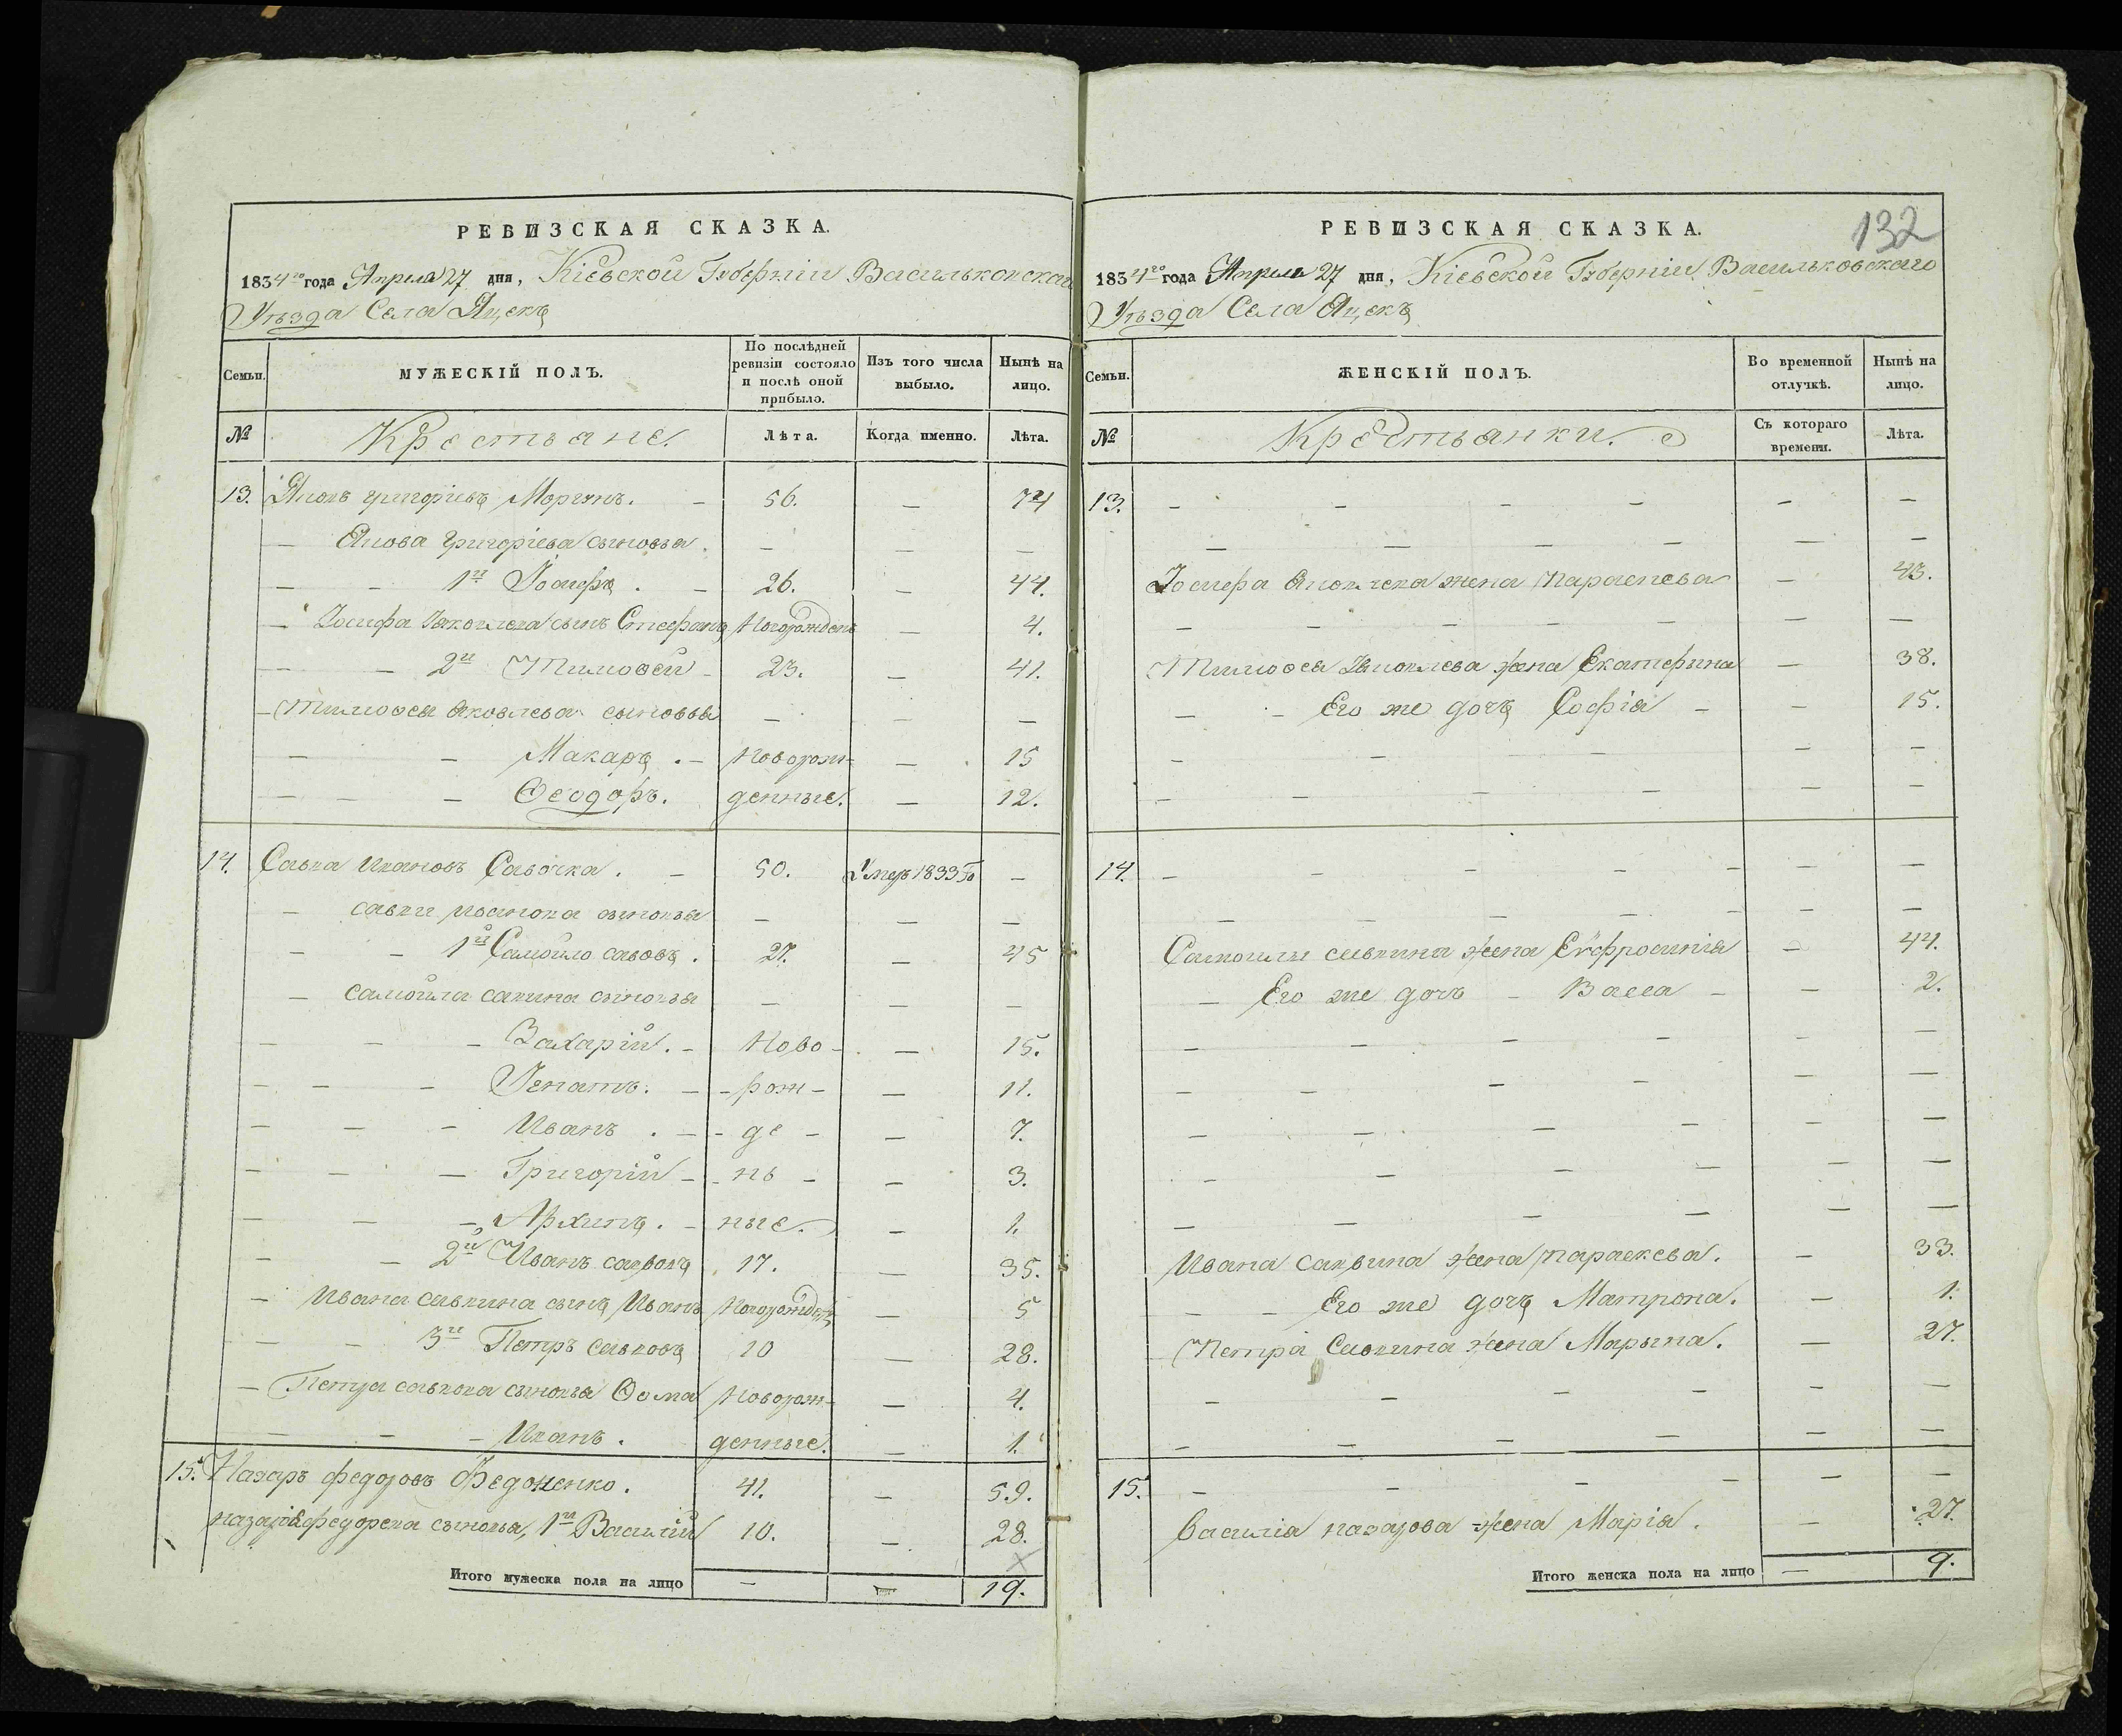 РЕВИЗСКАЯ СКАЗКА.
1834го года Апреля 27 дня, Кіевской Губерніи Васильковскаго
Уѣзда Села Яцекъ
Семьи.
МУЖЕСКІЙ ПОЛЪ.
По послѣдней ревизіи состояло и послѣ оной прибыло.
Изъ того числа выбыло.
Нынѣ на лицо.
№ Крестьяне. Лѣта. Когда именно. Лѣта.
13. Яковъ григорієвъ Моргунъ. - 56. - 74
- Якова григоріева сыновья. - - -
- - 1й Іосифъ. - 26. - 44.
- Іосифа Яковлева сынъ Стефанъ Новорожденъ - 4.
- - 2й Тимоѳей - 23. - 41.
- Тимоѳея Яковлева сыновья - - -
- - Макаръ. - Новорож- - 15
- - - Ѳеодоръ. денные. - 12.
14. Савка Ивановъ Савочка. - 50. Умеръ 1833 го -
- савки иванова сыновья - - -
- - 1й Самойло савовъ. 27. - 45
- самойла савина сыновья - - -
- - - Захарій. - Ново- - 15.
- - - Игнатъ. - - рож- - 11.
- - - Иванъ. - - де - - 7.
- - - Григорій - - нъ - - 3.
- - - Архипъ. - ные. - 1.
- - 2й Иванъ савовъ 17. - 35.
- Ивана савкина сынъ Иванъ Новорожденъ - 5
- - 3й Петръ савковъ 10 - 28.
- Петра савкова сыновья Ѳома Новорож- - 4.
- - - Иванъ. денные. - 1.
15. Назаръ федоровъ Федоненко. 41. - 59.
назарія федорова сыновья, 1й Василій 10. - 28.
Итого мужеска пола на лицо - - 19.
132
РЕВИЗСКАЯ СКАЗКА.
1834го года Апреля 27 дня, Кіевской Губерніи Васильковскаго
Уѣзда Села Яцекъ
Семьи.
ЖЕНСКІЙ ПОЛЪ.
Во временной отлучкѣ.
Нынѣ на лицо.
№ Крестьянки. Съ котораго времени. Лѣта.
13. - - - - - -
- - - - - -
Іосифа Яковлева жена Параскева - 43.
- - - - - - -
Тимоѳея Яковлева жена Екатерина - 38.
- - Его же дочъ Софія - - 15.
- - - - - -
- - - - - -
14. - - - - - - -
- - - - - - -
Самоилы савкина жена Евфросинія - 44.
- Его же дочъ - Васса - - 2.
- - - - - -
- - - - - -
- - - - - -
- - - - - -
- - - - - -
Ивана савкина жена параскева. - 33.
- - Его же дочъ Матрона. - 1.
Петра Савкина жена Марына. - 27.
- - - - - -
- - - - - - -
15. - - - - - -
Василія назарова жена Марія. - 27.
Итого женска пола на лицо - 9.